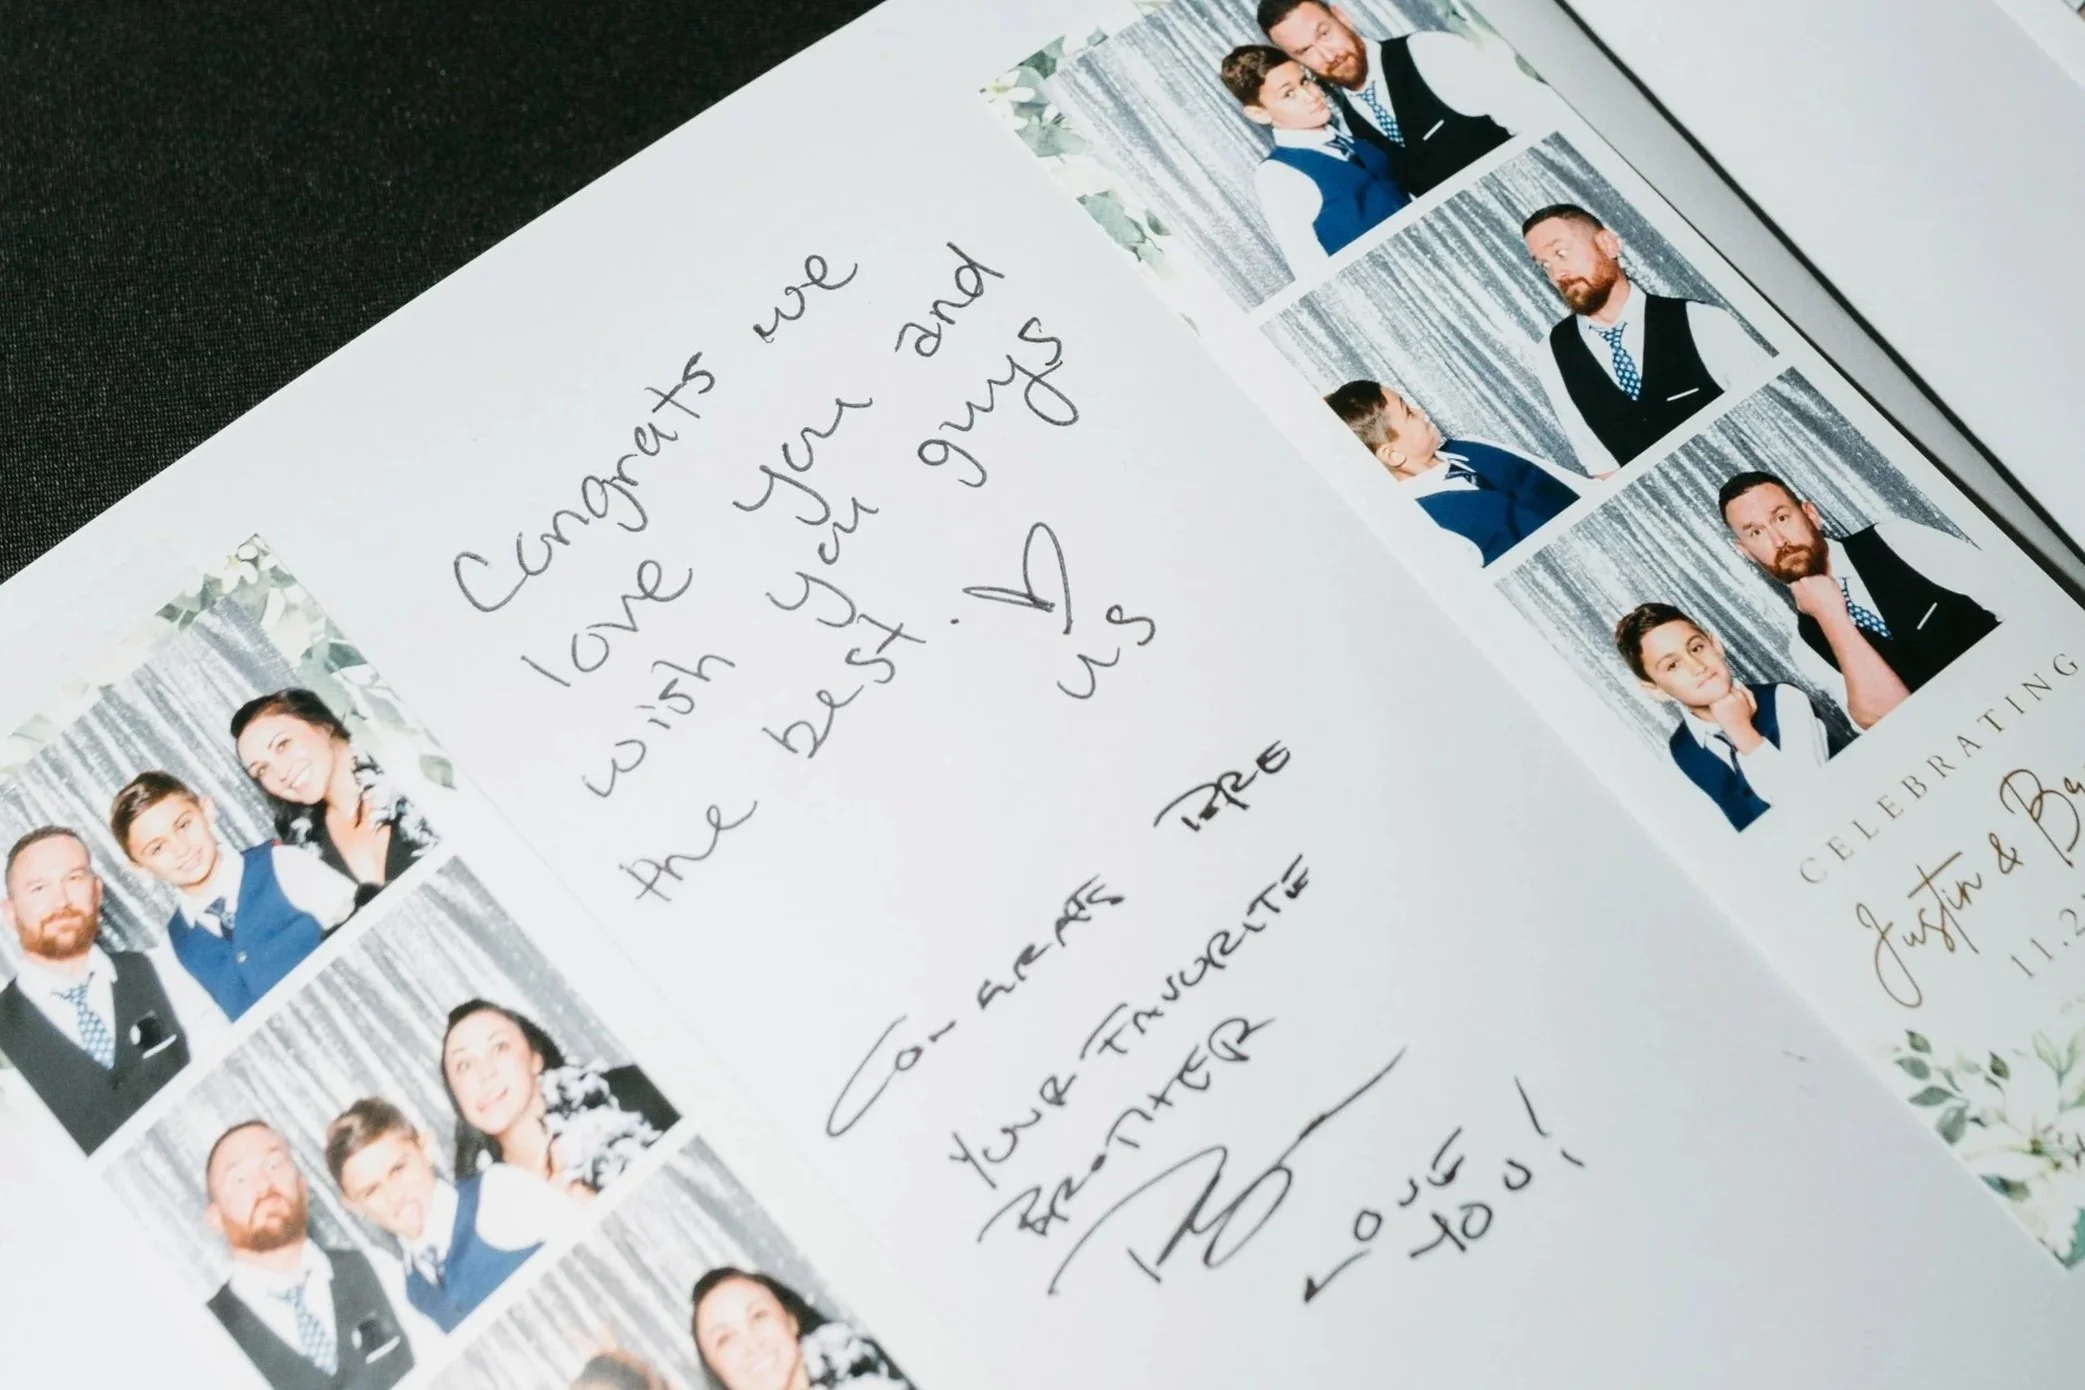 Congrats we
love you and
wish you guys
the best.
us
CONGRATS BRE
YOUR FAVORITE
BROTHER
LOVE
YOU!
CELEBRATING
Justin &
11.2